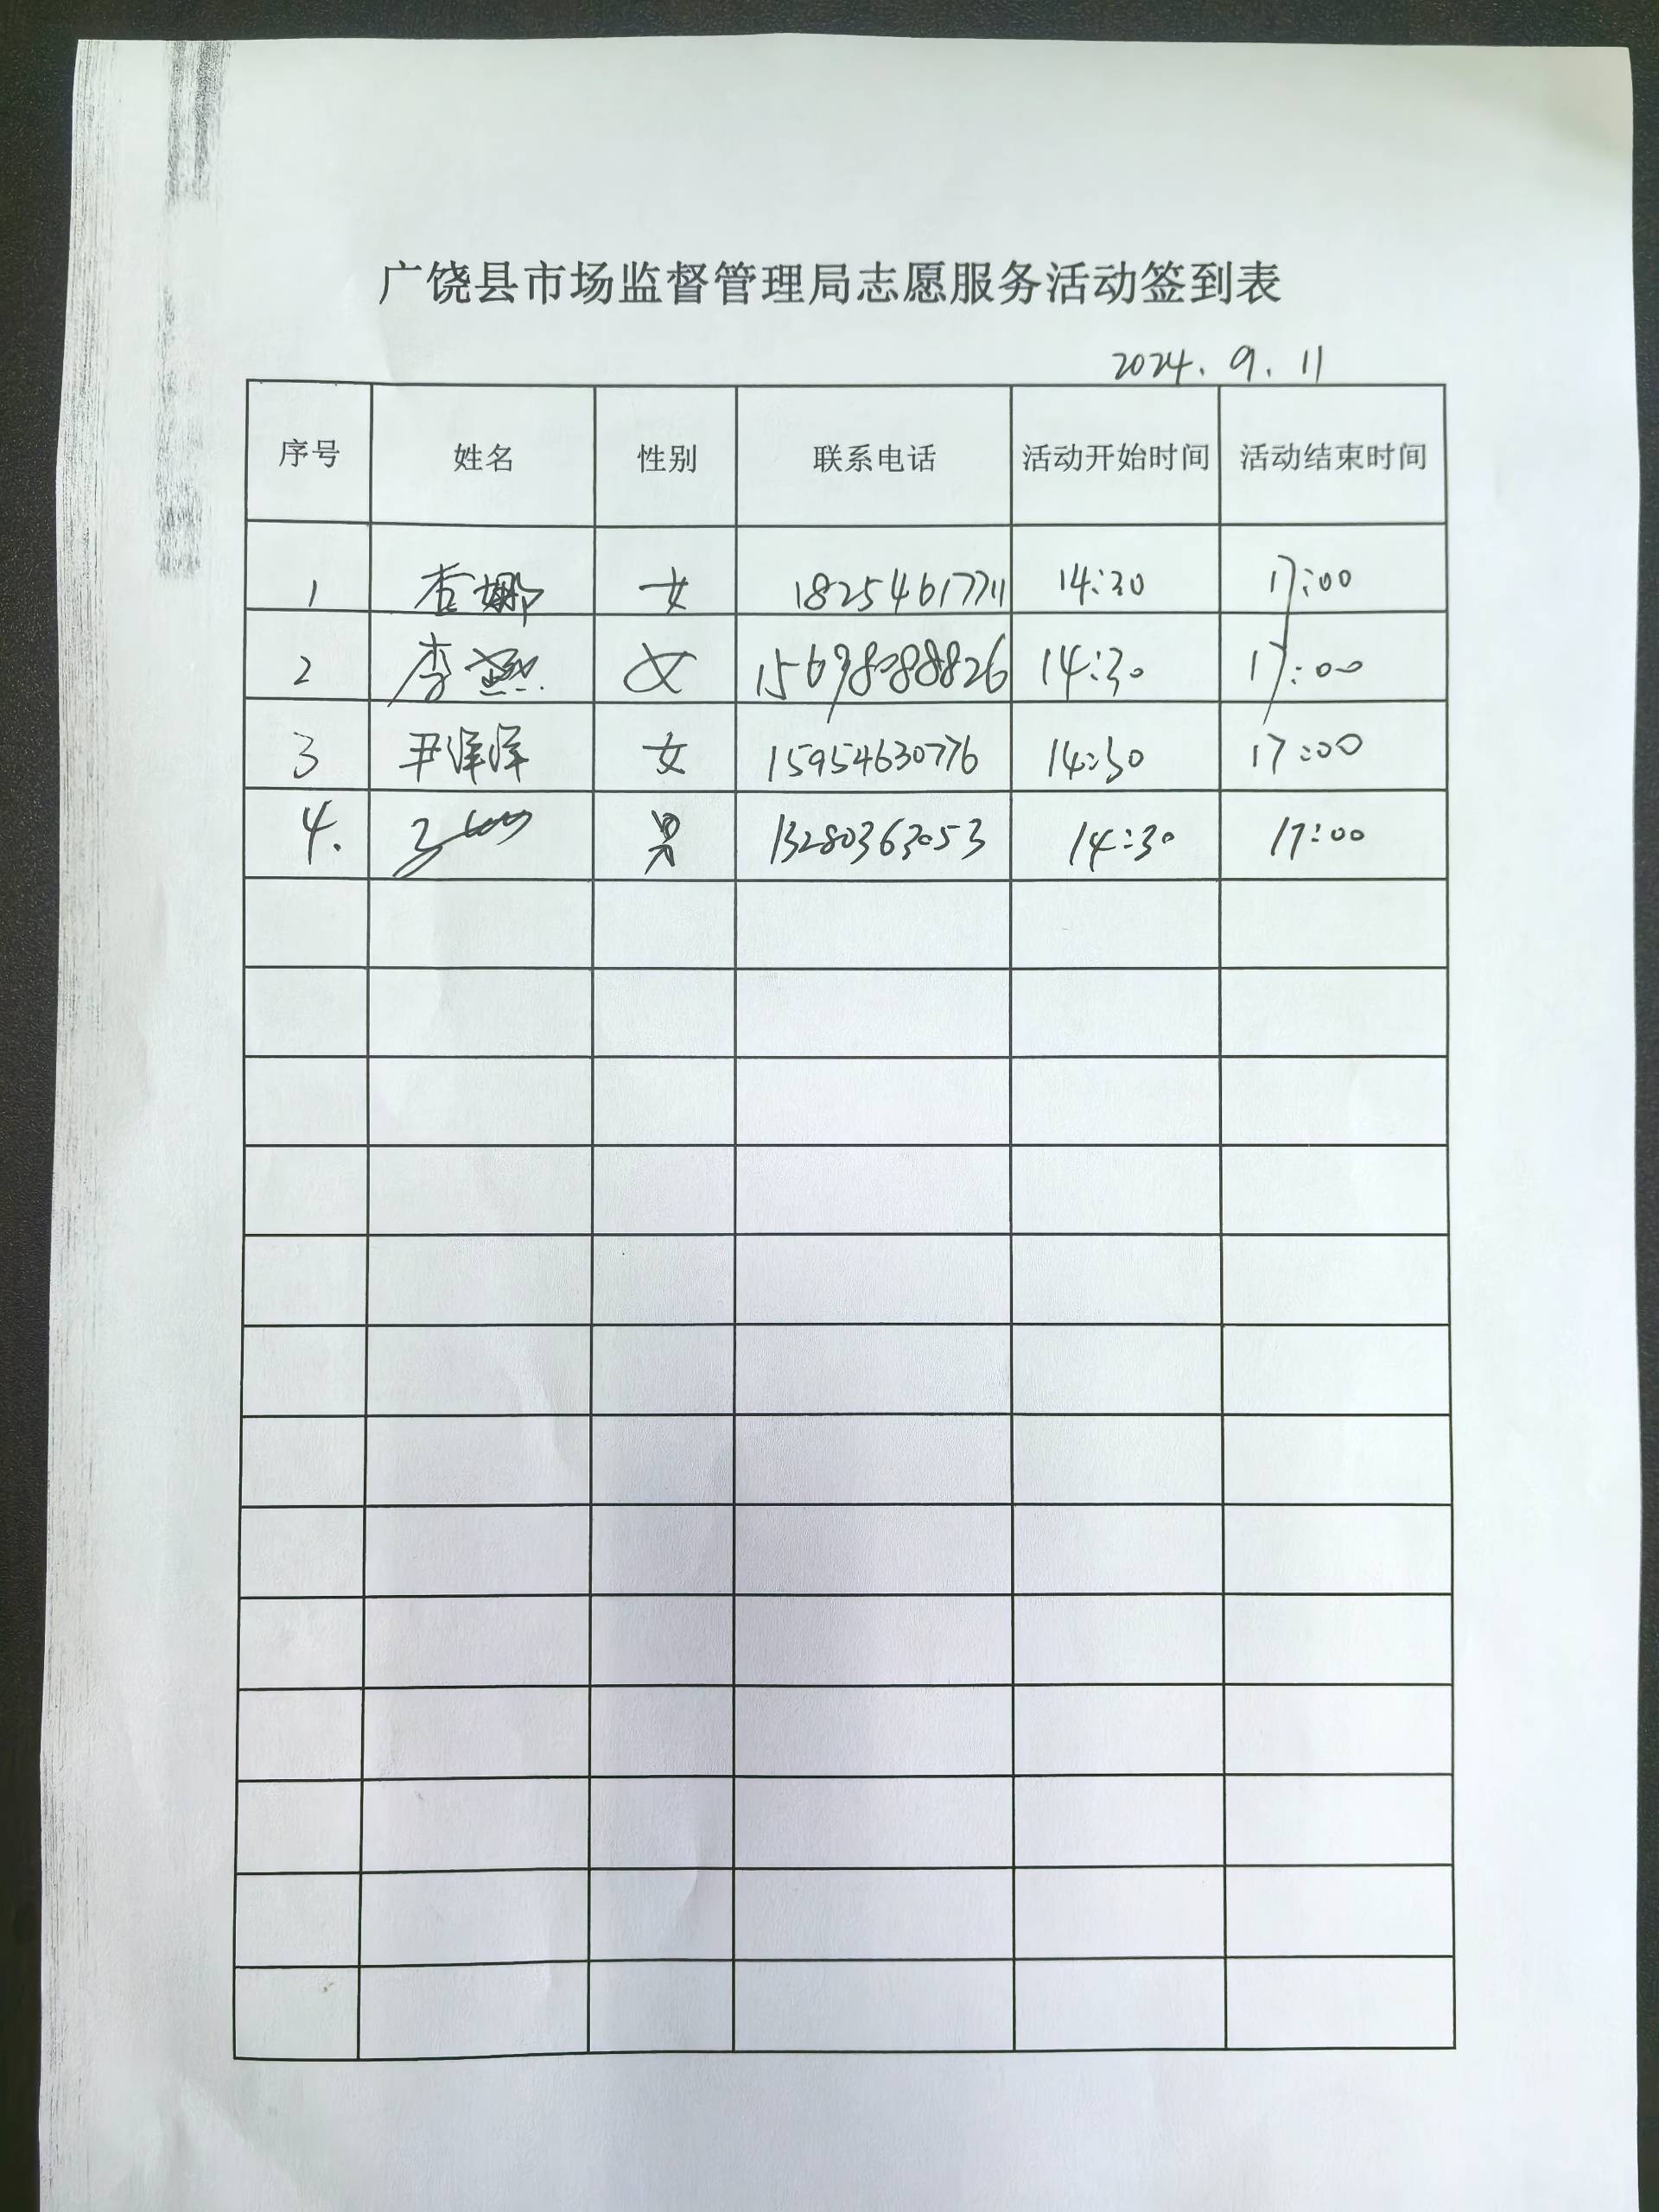 广饶县市场监督管理局志愿服务活动签到表
2024.9.11
序号 姓名 性别 联系电话 活动开始时间 活动结束时间
1 女 18254617711 14:30 17:00
2 李燕 女 15698088826 14:30 17:00
3 尹洋洋 女 15954630776 14:30 17:00
4. 男 13280363053 14:30 17:00